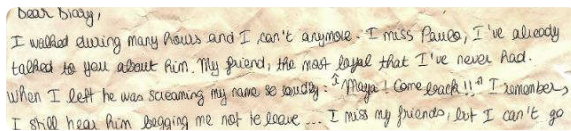 Dear Diary,
I walked during many hours and I can't anymore. I miss Paulo, I've already
talked to you about him. My friend, the most loyal that I've never had.
When I left he was screaming my name so loudly: "Maya! Come back!!" I remember,
I still hear him begging me not to leave... I miss my friends, but I can't go